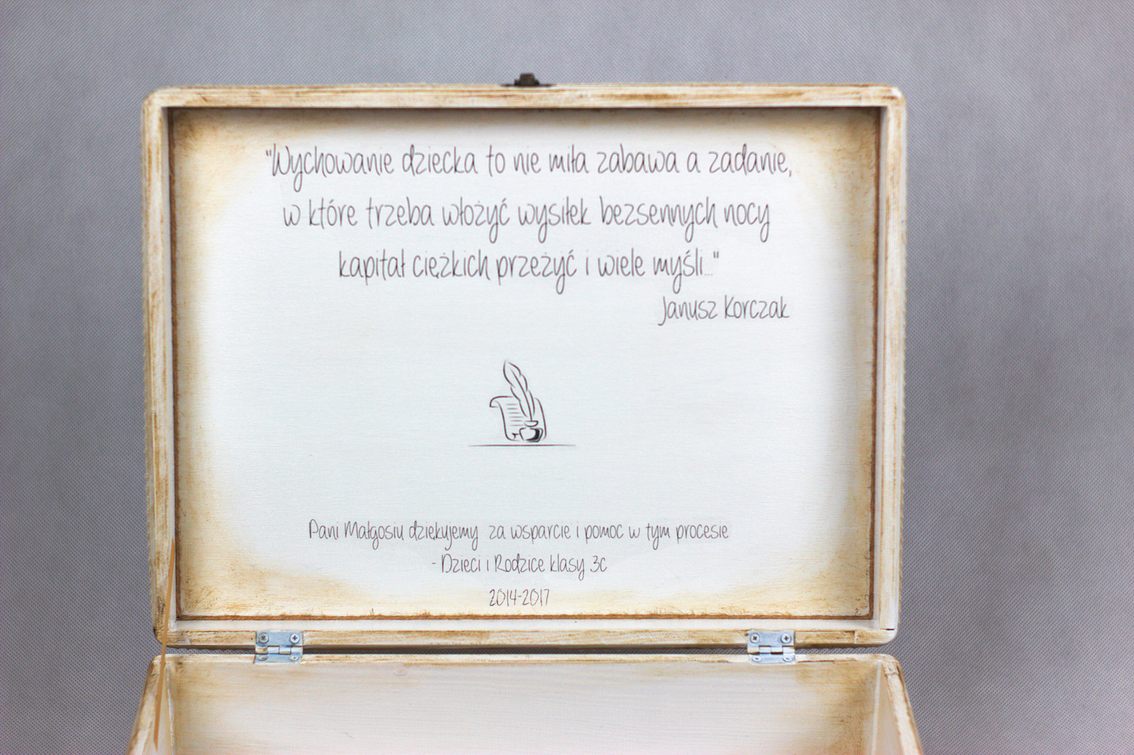 "Wychowanie dziecka to nie miła zabawa a zadanie,
w które trzeba włożyć wysiłek bezsennych nocy
kapitał ciężkich przeżyć i wiele myśli..."
Janusz Korczak
Pani Małgosiu dziękujemy za wsparcie i pomoc w tym procesie
- Dzieci i Rodzice klasy 3c
2014-2017